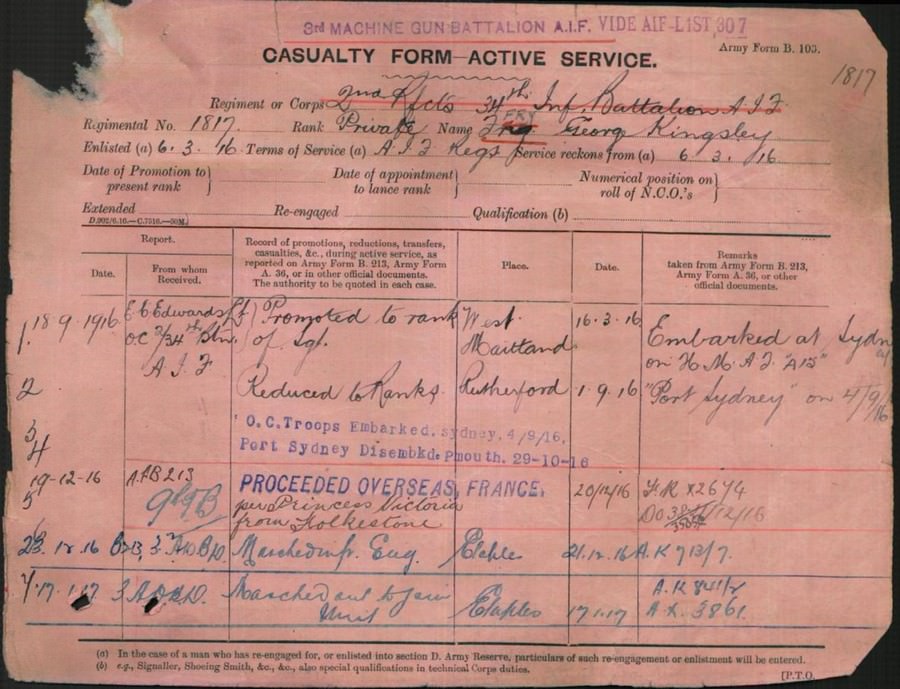 3rd MACHINE GUN BATTALION A.I.F. VIDE AIF-L1ST 307
Army Form B. 103.
CASUALTY FORM—ACTIVE SERVICE.
1817
Regiment or Corps 2nd Rfcts 34th Inf. Battalion A I F
Regimental No. 1817. Rank Private Name FRY George Kingsley
Enlisted (a) 6. 3. 16. Terms of Service (a) A. I. F Regs Service reckons from (a) 6. 3. 16
Date of Promotion to present rank } Date of appointment to lance rank } Numerical position on roll of N.C.O.'s }
Extended Re-engaged Qualification (b)
D.902/6.16.—C.7516.—50M.
Report.
Date.
From whom Received.
Record of promotions, reductions, transfers, casualties, &c., during active service, as reported on Army Form B. 213, Army Form A. 36, or in other official documents. The authority to be quoted in each case.
Place.
Date.
Remarks taken from Army Form B. 213, Army Form A. 36, or other official documents.
1. 18-9-1916 E C Edwards Lt OC 2/34th Btn. A I F Promoted to rank of Sgt. West Maitland 16-3-16 Embarked at Sydney on H. M. A. T "A15" "Port Sydney" on 4/9/16
2 Reduced to Ranks. Rutherford 1-9-16
3 O.C. Troops Embarked. Sydney, 4/9/16.
4 Port Sydney Disembkd. Pmouth. 29-10-16
19-12-16 AAB213 PROCEEDED OVERSEAS, FRANCE. 20/12/16 F.K X2674
5 per Princess Victoria from Folkestone Do /12/16
Marched in fr. Eng. Etaples 21.12.16 A.K 713/7.
17.1.17 3 A.D.B.D. Marched out to join Unit Etaples 17.1.17 A.K 841/2 A.X. 3861.
(a) In the case of a man who has re-engaged for, or enlisted into section D. Army Reserve, particulars of such re-engagement or enlistment will be entered.
(b) e.g., Signaller, Shoeing Smith, &c., &c., also special qualifications in technical Corps duties.
[P.T.O.